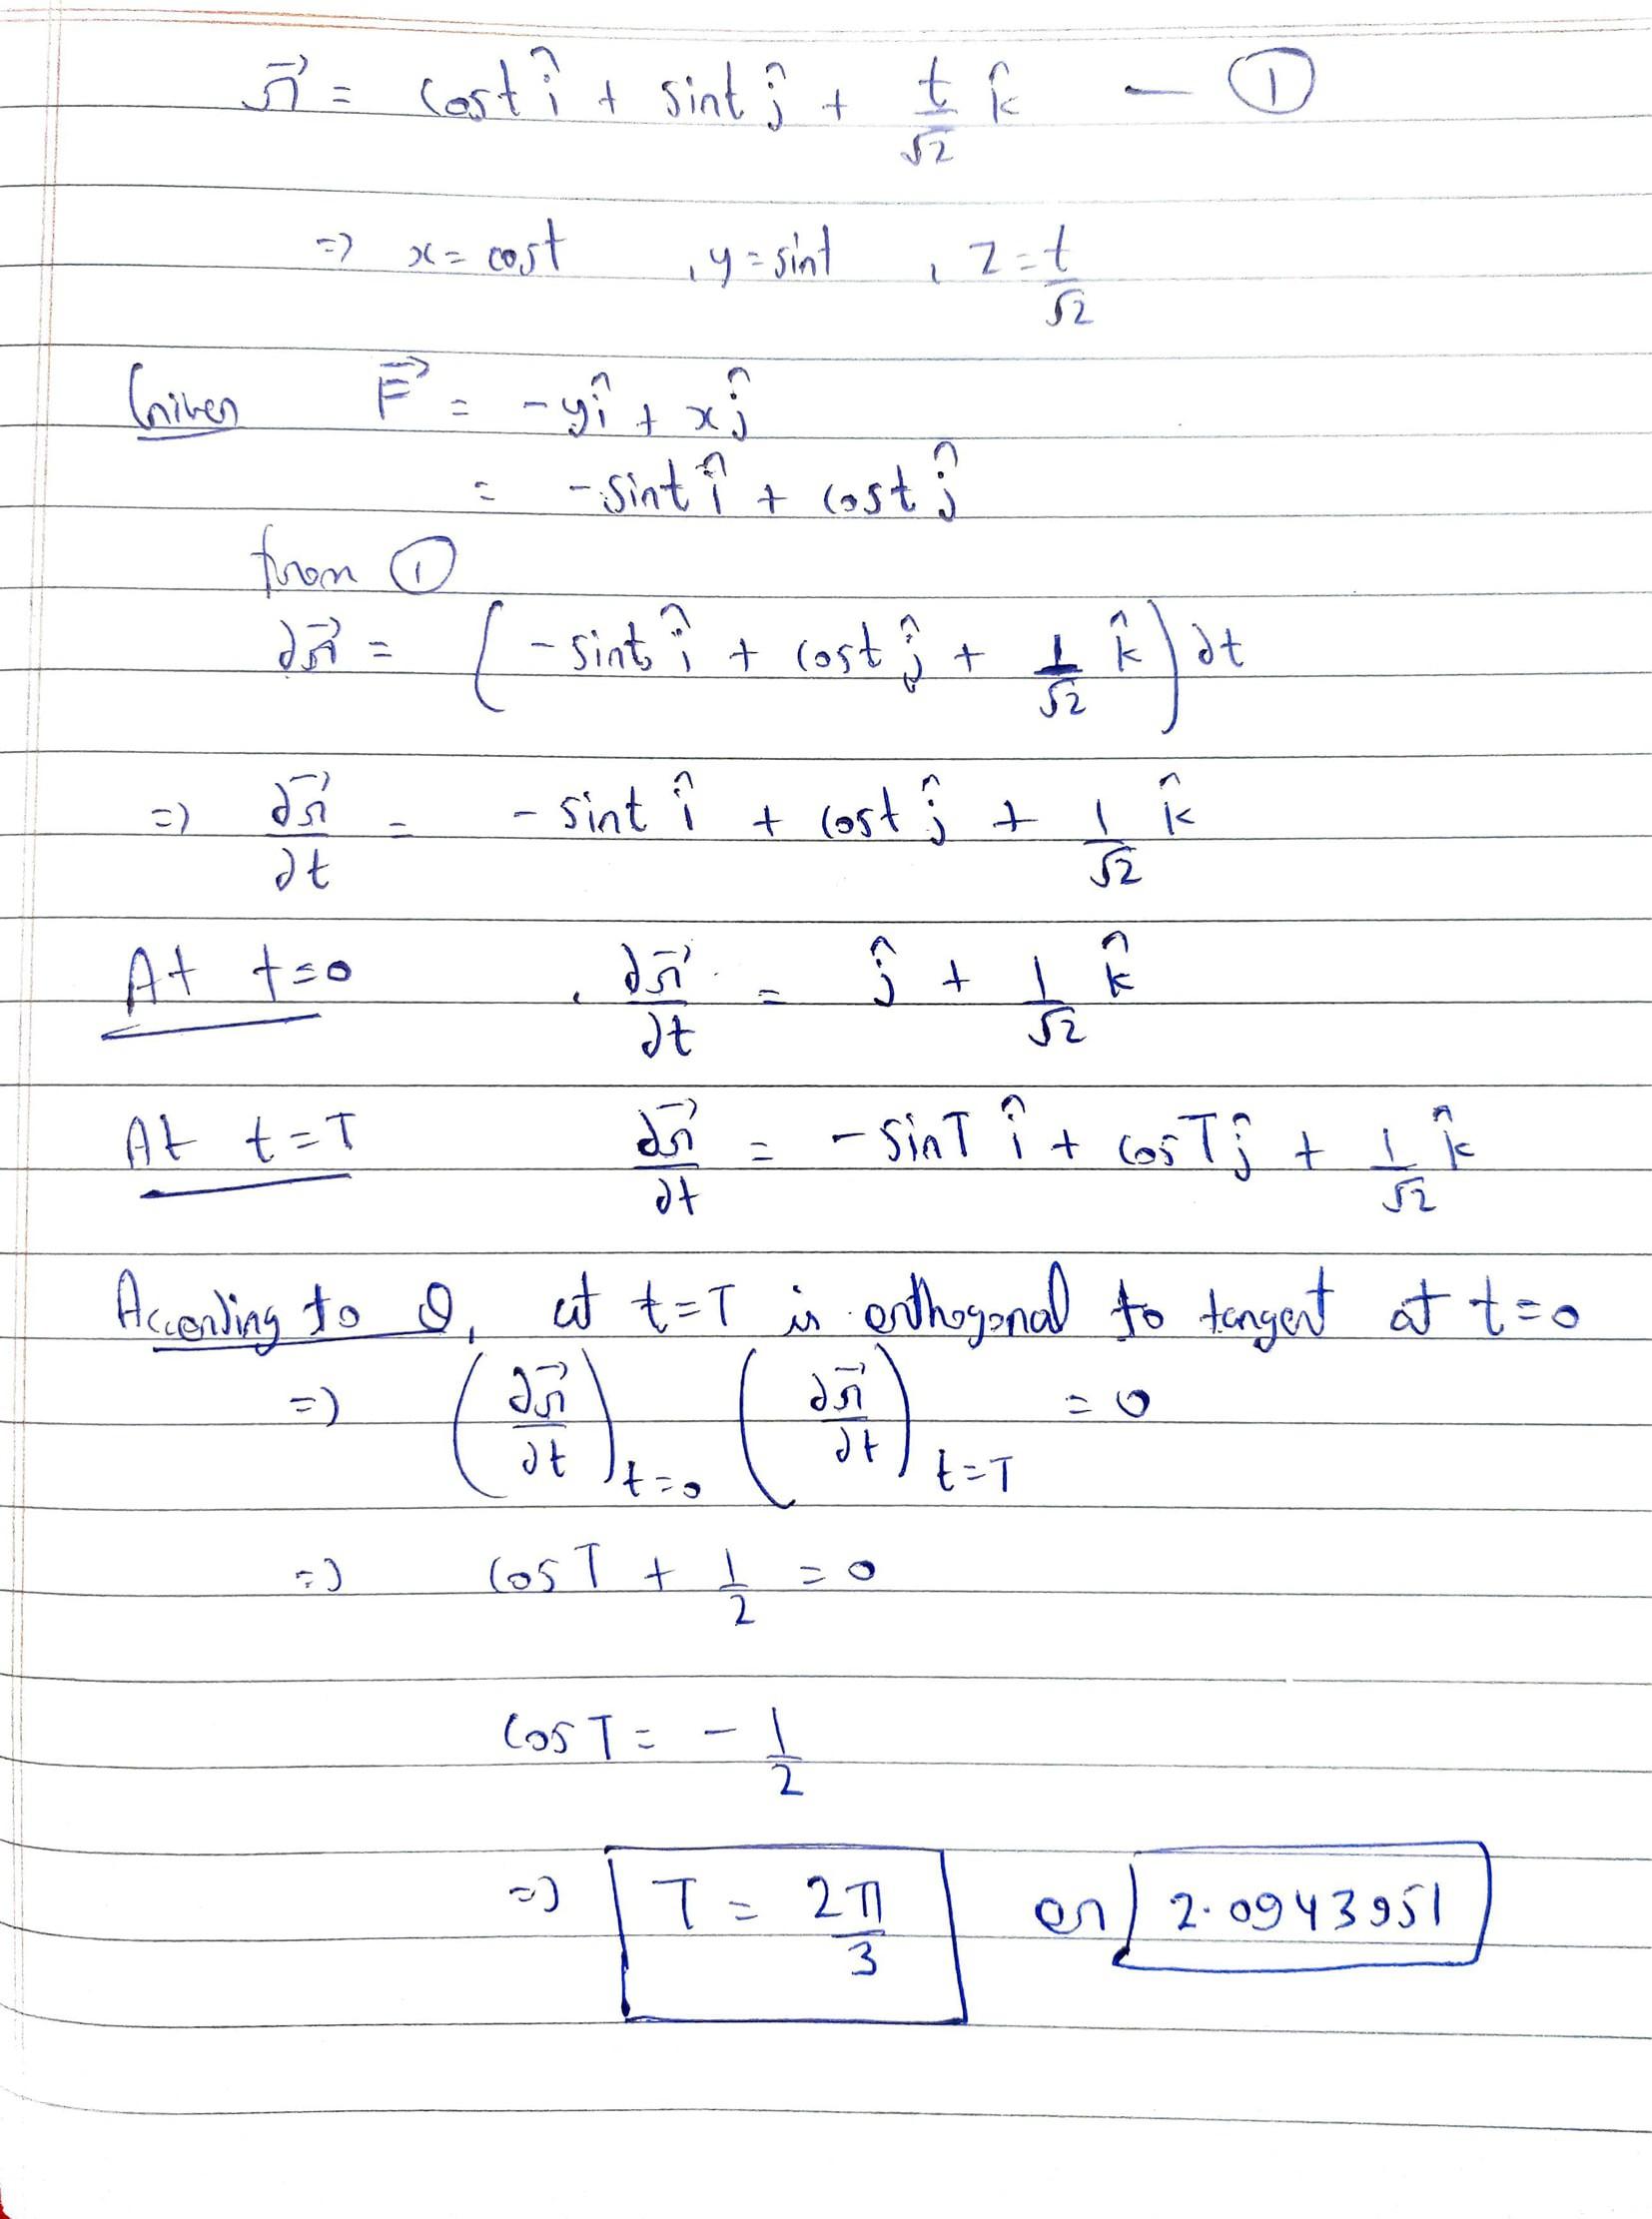 r⃗ = cost î + sint ĵ + t/√2 k̂ — ①
=> x = cost , y = sint , z = t/√2
Given F⃗ = -yî + xĵ
= -sint î + cost ĵ
from ①
∂r⃗ = (-sint î + cost ĵ + 1/√2 k̂) ∂t
=> ∂r⃗/∂t = -sint î + cost ĵ + 1/√2 k̂
At t=0 , ∂r⃗/∂t = ĵ + 1/√2 k̂
At t=T ∂r⃗/∂t = -sinT î + cosT ĵ + 1/√2 k̂
According to Q, at t=T is orthogonal to tangent at t=0
=> (∂r⃗/∂t)t=0 (∂r⃗/∂t)t=T = 0
=> cosT + 1/2 = 0
cosT = -1/2
=> T = 2π/3 or 2.0943951